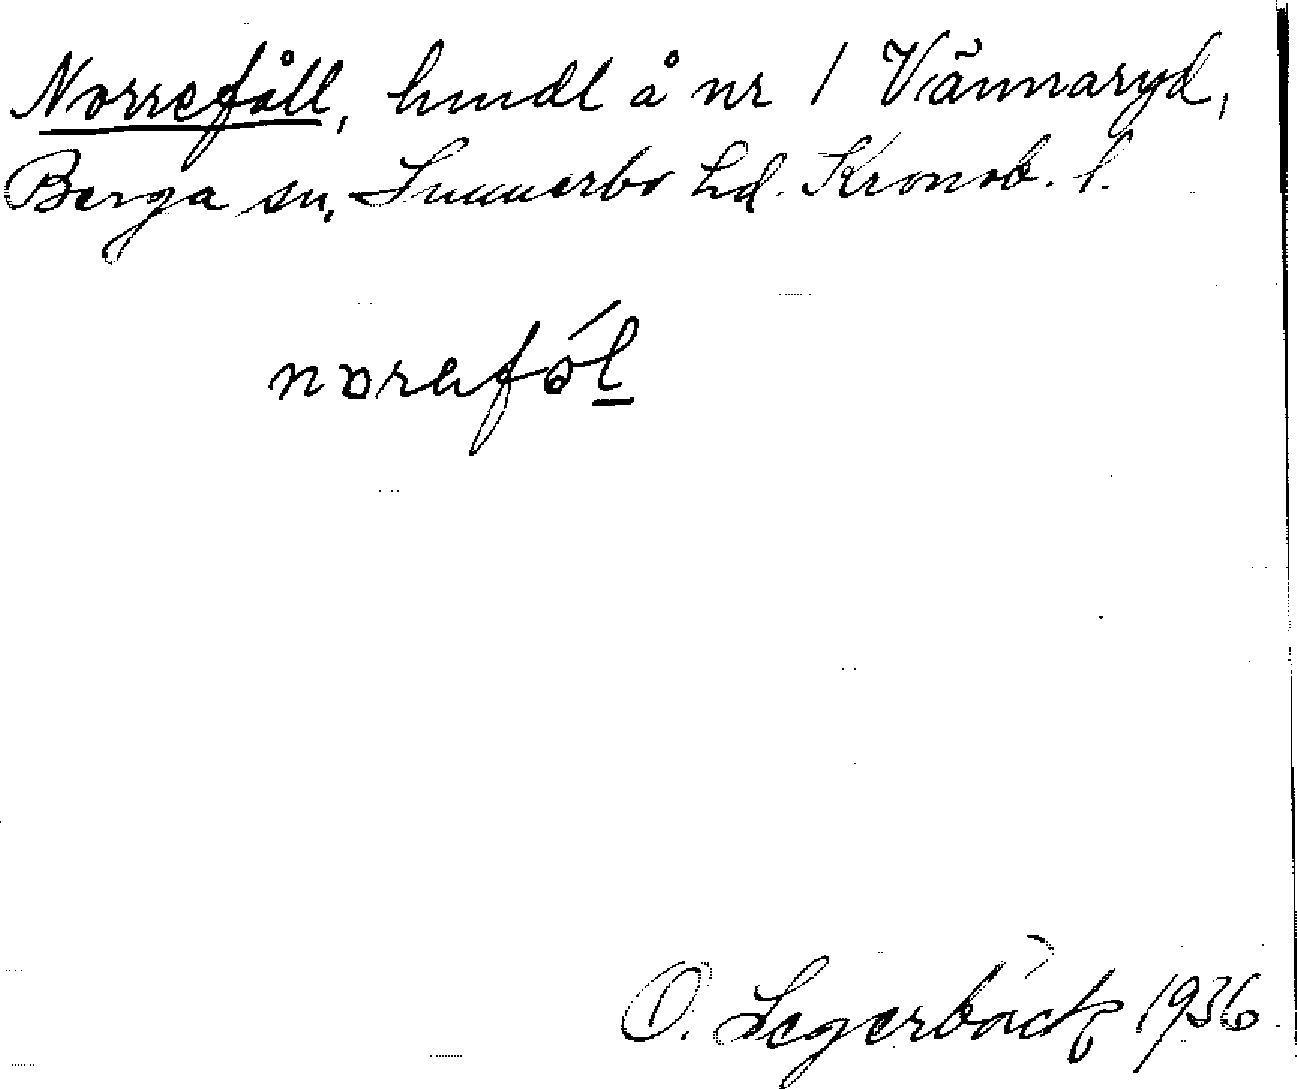 Norrefåll, hmdl å nr 1 Vännaryd,
Berga sn, Sunnerbo hd. Kronob. l.
norefó̲l
O. Segerbäck 1936